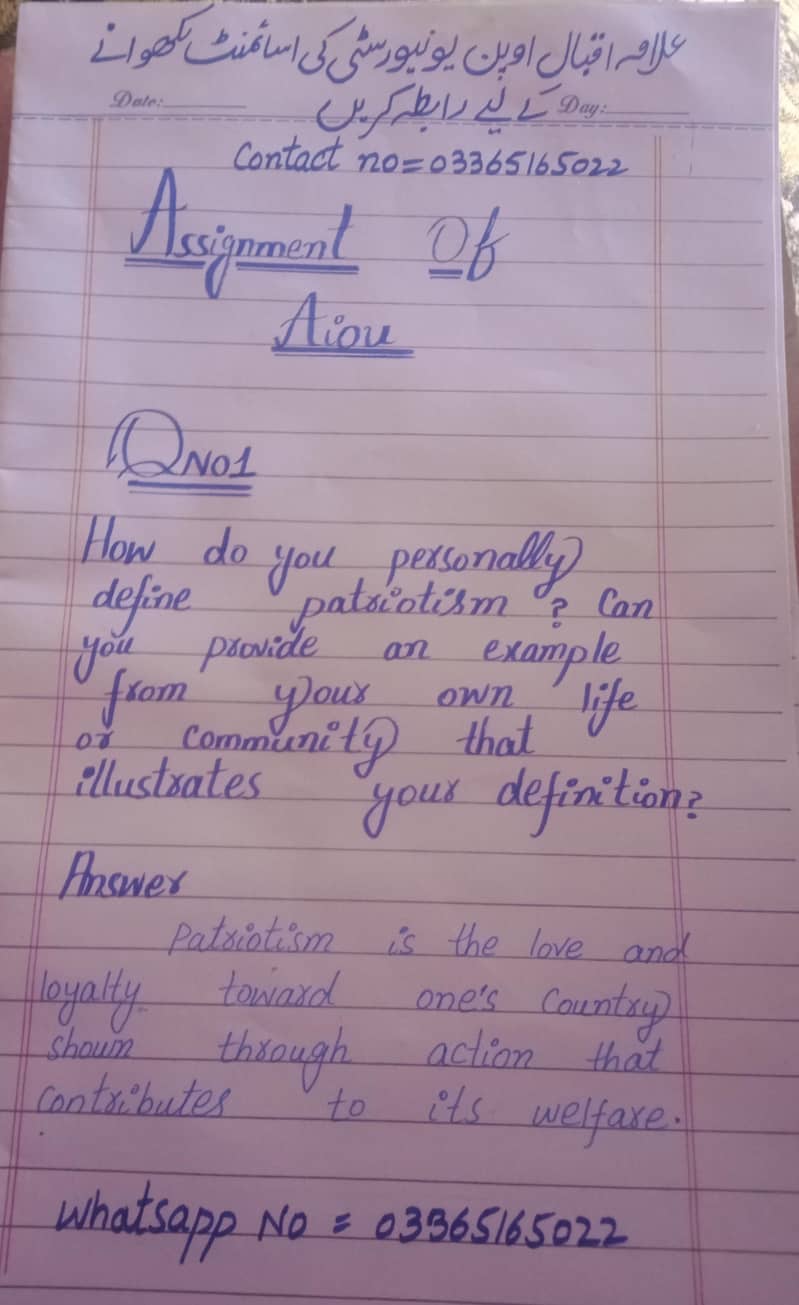 علامہ اقبال اوپن یونیورسٹی کی اسائمنٹ لکھوانے
Date: کے لیے رابطہ کریں Day:
Contact no=03365165022
Assignment Of
Aiou
QNO1
How do you personally
define patriotism? Can
you provide an example
from your own life
or community that
illustrates your definition?
Answer
Patriotism is the love and
loyalty toward one's Country
shown through action that
Contributes to its welfare.
Whatsapp No = 03365165022